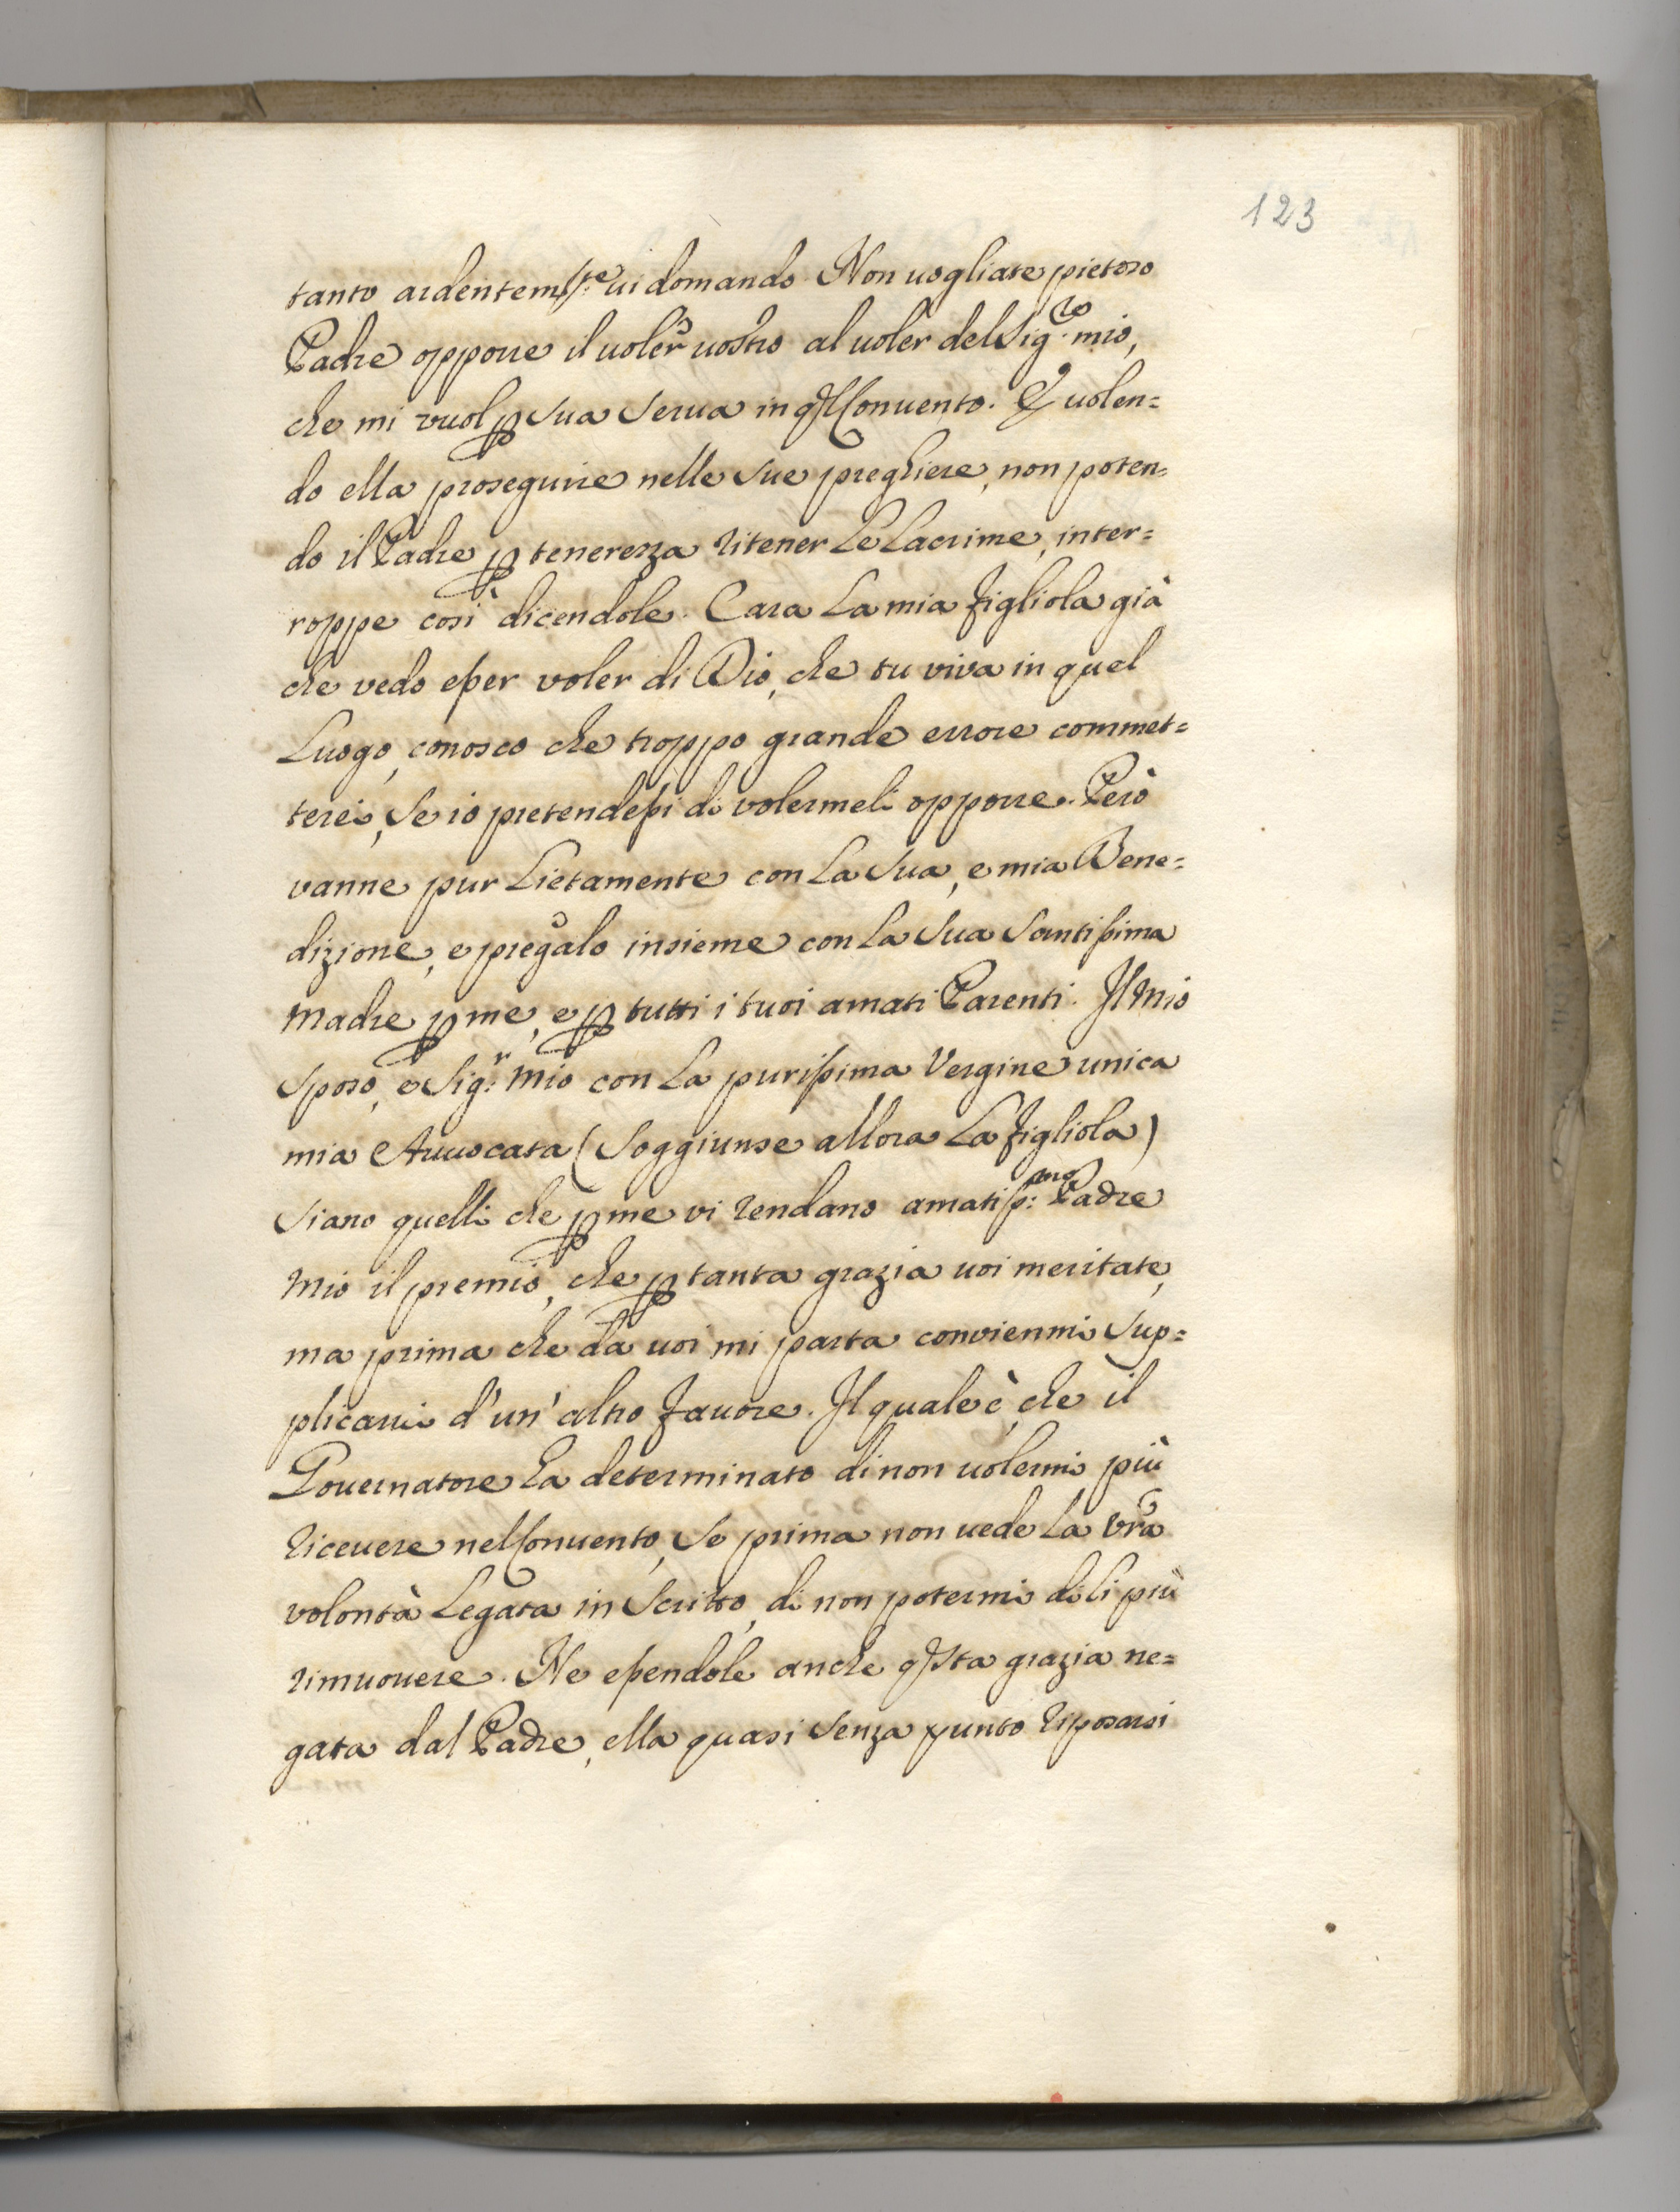 123
tanto ardentem:te ui domando. Non uogliate pietoso
Padre opporre il uoler uostro al uoler del Sig:re mio,
che mi vuol p sua serua in qsto Conuento. E uolen=
do ella proseguire nelle sue preghiere, non poten=
do il Padre p tenerezza ritener le lacrime, inter=
roppe così dicendole. Cara la mia figliola già
che vedo esser voler di Dio, che tu viva in quel
Luogo, conosco che troppo grande errore commet=
terei, se io pretendessi di volermeli opporre. Però
vanne pur lietamente con la sua, e mia Bene=
dizione, e pregalo insieme con la sua santissima
Madre p me, e p tutti i tuoi amati Parenti. Il mio
sposo, e Sig:r mio con la purissima Vergine unica
mia Auuocata (soggiunse allora la figliola)
siano quelli che p me vi rendano amatiss:mo Padre
mio il premio, che p tanta grazia uoi meritate,
ma prima che da uoi mi parta conviemmi sup=
plicarui d'un' altro fauore. Il quale è, che il
Gouernatore ha determinato di non uolermi più
riceuere nel Conuento, se prima non uede la vra
volontà legata in scritto, di non potermi di li più
rimuouere. Ne essendole anche qsta grazia ne=
gata dal Padre, ella quasi senza punto riposarsi